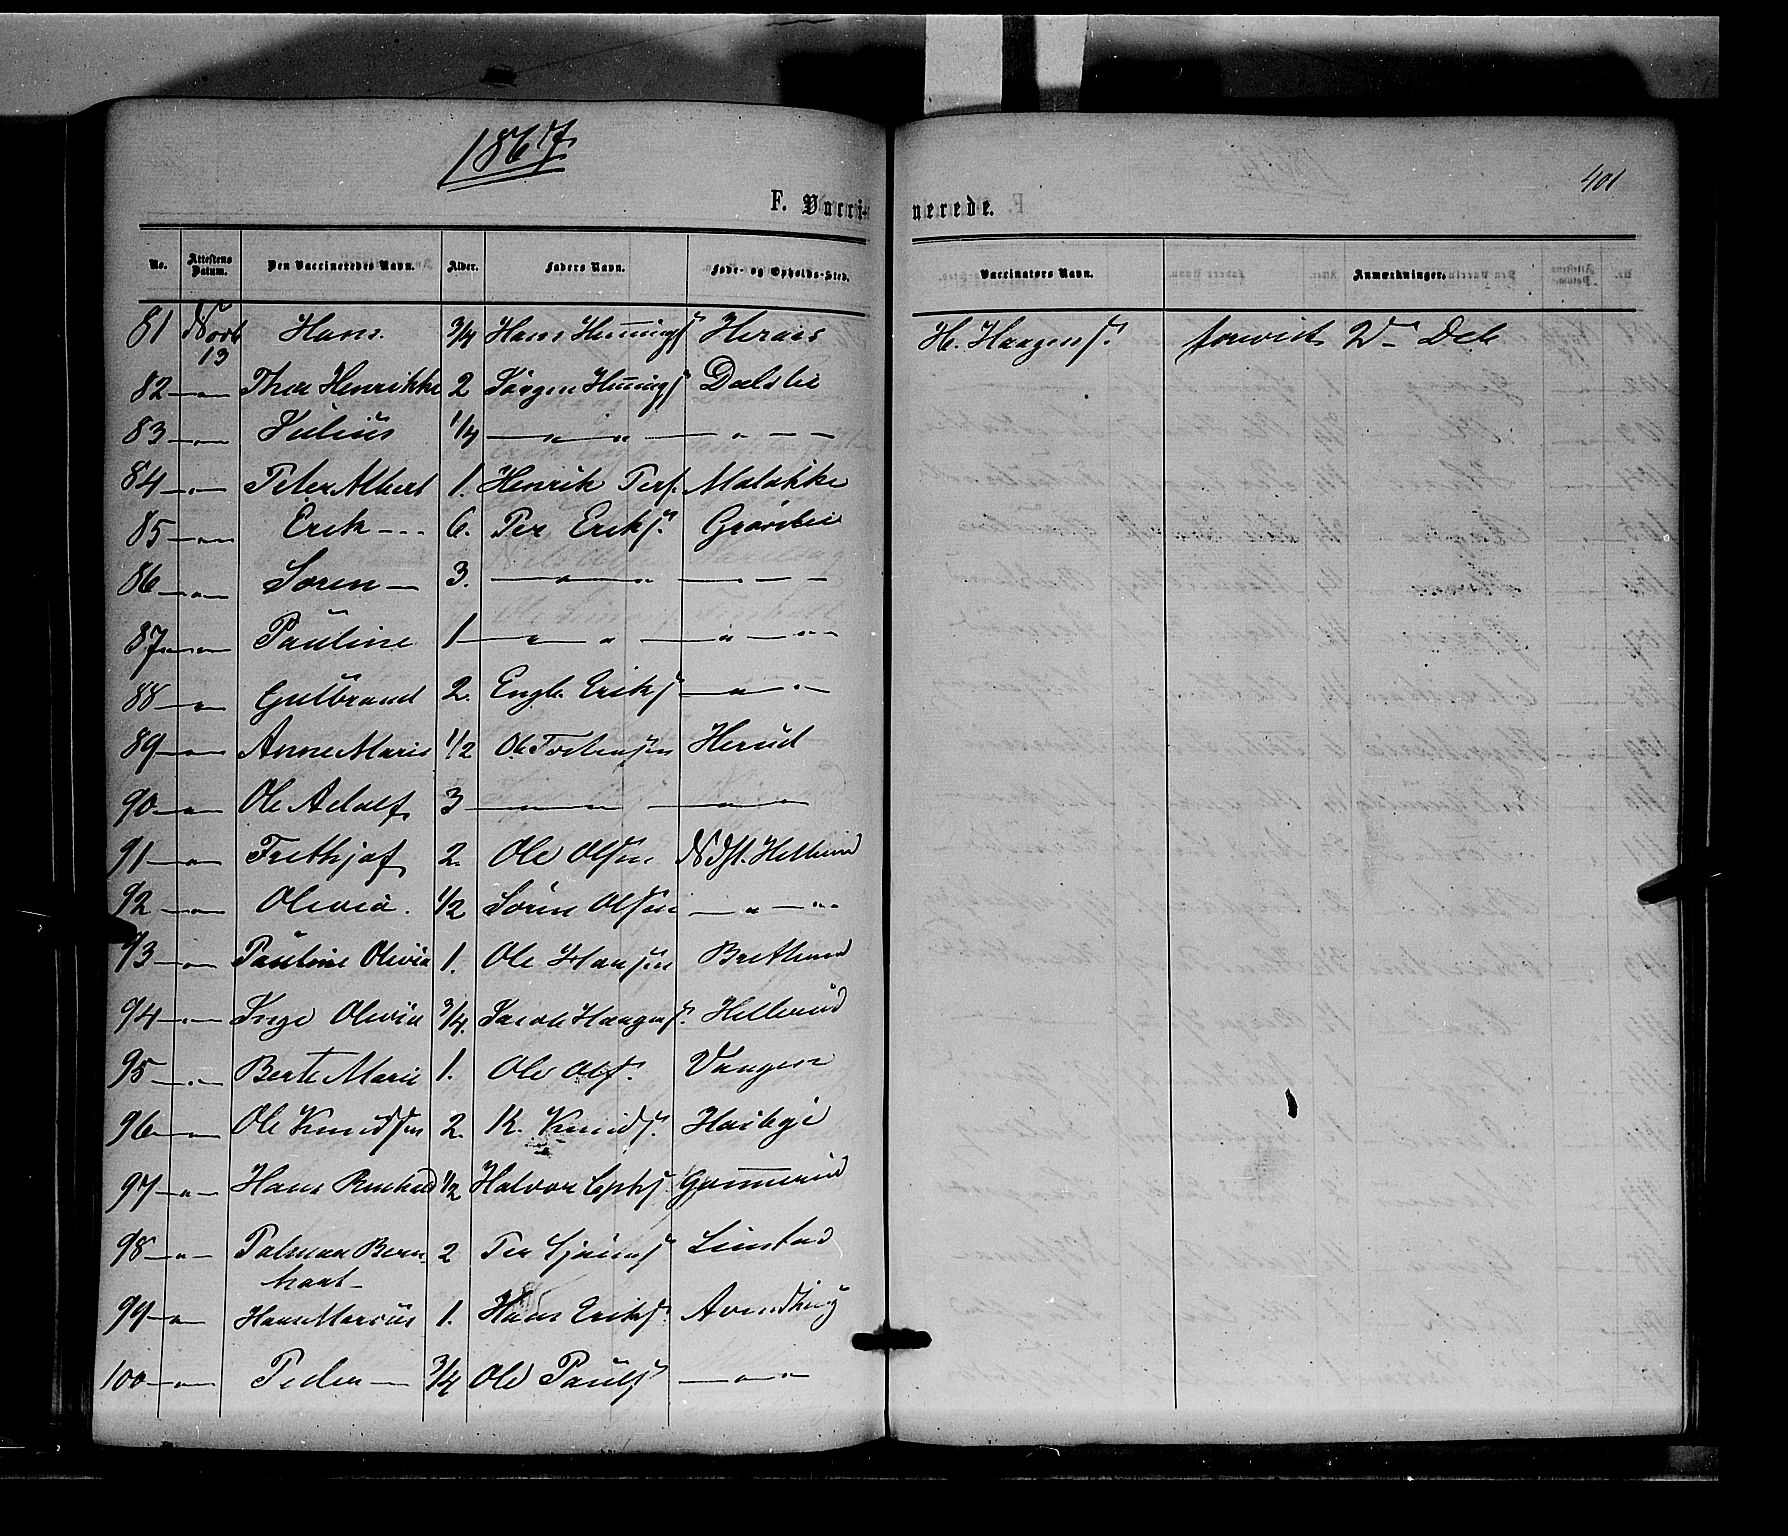 1867
401
F. Vacci-
nerede.
No. Attestens Datum. Den Vaccineredes Navn. Alder. Faders Navn. Føde- og Opholds-Sted. Vaccinators Navn. Anmærkninger.
81 Novb 13 Hans. 3/4 Hans Henings Heraas H. Haagens. forevist V Deb
82 — " — Thea Henrikke 2 Jörgen Henings Dælslie
83 — " — Julius 1/4 — " " — " — —
84 — " — Peter Albert 1. Henrik Pers. Maløkke
85 — " — Erik - - - 6. Per Eriks. Grövslie
86 — " — Soren — 3. — " " — " — —
87 — " — Pauline 1 — " " — " — " —
88 — " — Gulbrand 2. Engb. Eriks — " — " —
89 — " — Anne Marie 1/2 Ole Torstensen Herud
90 — " — Ole Adolf 3 — " — " — " — " —
91 — " — Frethjof 2. Ole Olsen Ndst. Hellerud
92 — " — Olevia. 1/2 Sören Olsen — " — " —
93 — " — Pauline Olivia 1. Ole Hansen
94 — " — Inge Olivia 3/4. Jacob Haagens. Hellerud
95 — " — Berte Marie 1. Ole Ols. Vangen
96 — " — Ole Knudsen 2. K. Knuds. Haibye
97 — " — Hans 1/2 Halvor
98 — " — Palmar Bern- 2 Per Linstad
hart —
99 — " — Hans Marius 1. Hans Eriks.
100 — " — Peder — 3/4 Ole Pauls — " — " —